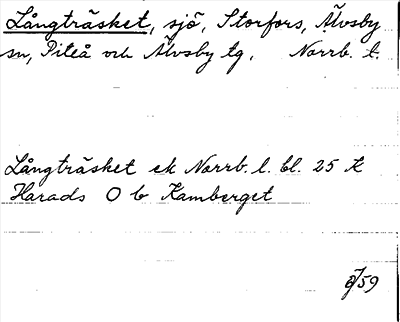 Långträsket, sjö, Storfors, Älvsby
sn, Piteå och Älvsby tg, Norrb. l.
Långträsket ek Norrb. l. bl. 25 K
Harads O b Kamberget
/59